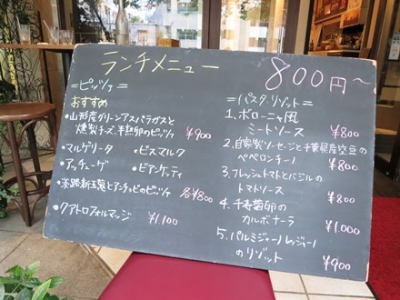 ランチメニュー 800円〜
=ピッツァ=
おすすめ
・山形産グリーンアスパラガスと
燻製チーズ、半熟卵のピッツァ ¥900
・マルゲリータ ・ビスマルク
・アッチューゲ ・ビアンケッティ
・淡路新玉葱とアンチョビのピッツァ 各¥800
・クアトロフォルマッジ ¥1,100
=パスタ、リゾット=
1. ボローニャ風
ミートソース ¥800
2. 自家製ソーセージと千葉県産空豆の
ペペロンチーノ ¥800
3. フレッシュトマトとバジルの
トマトソース ¥800
4. 千寿葡卵の
カルボナーラ ¥1,000
5. パルミジャーノレッジャーノ
のリゾット ¥900